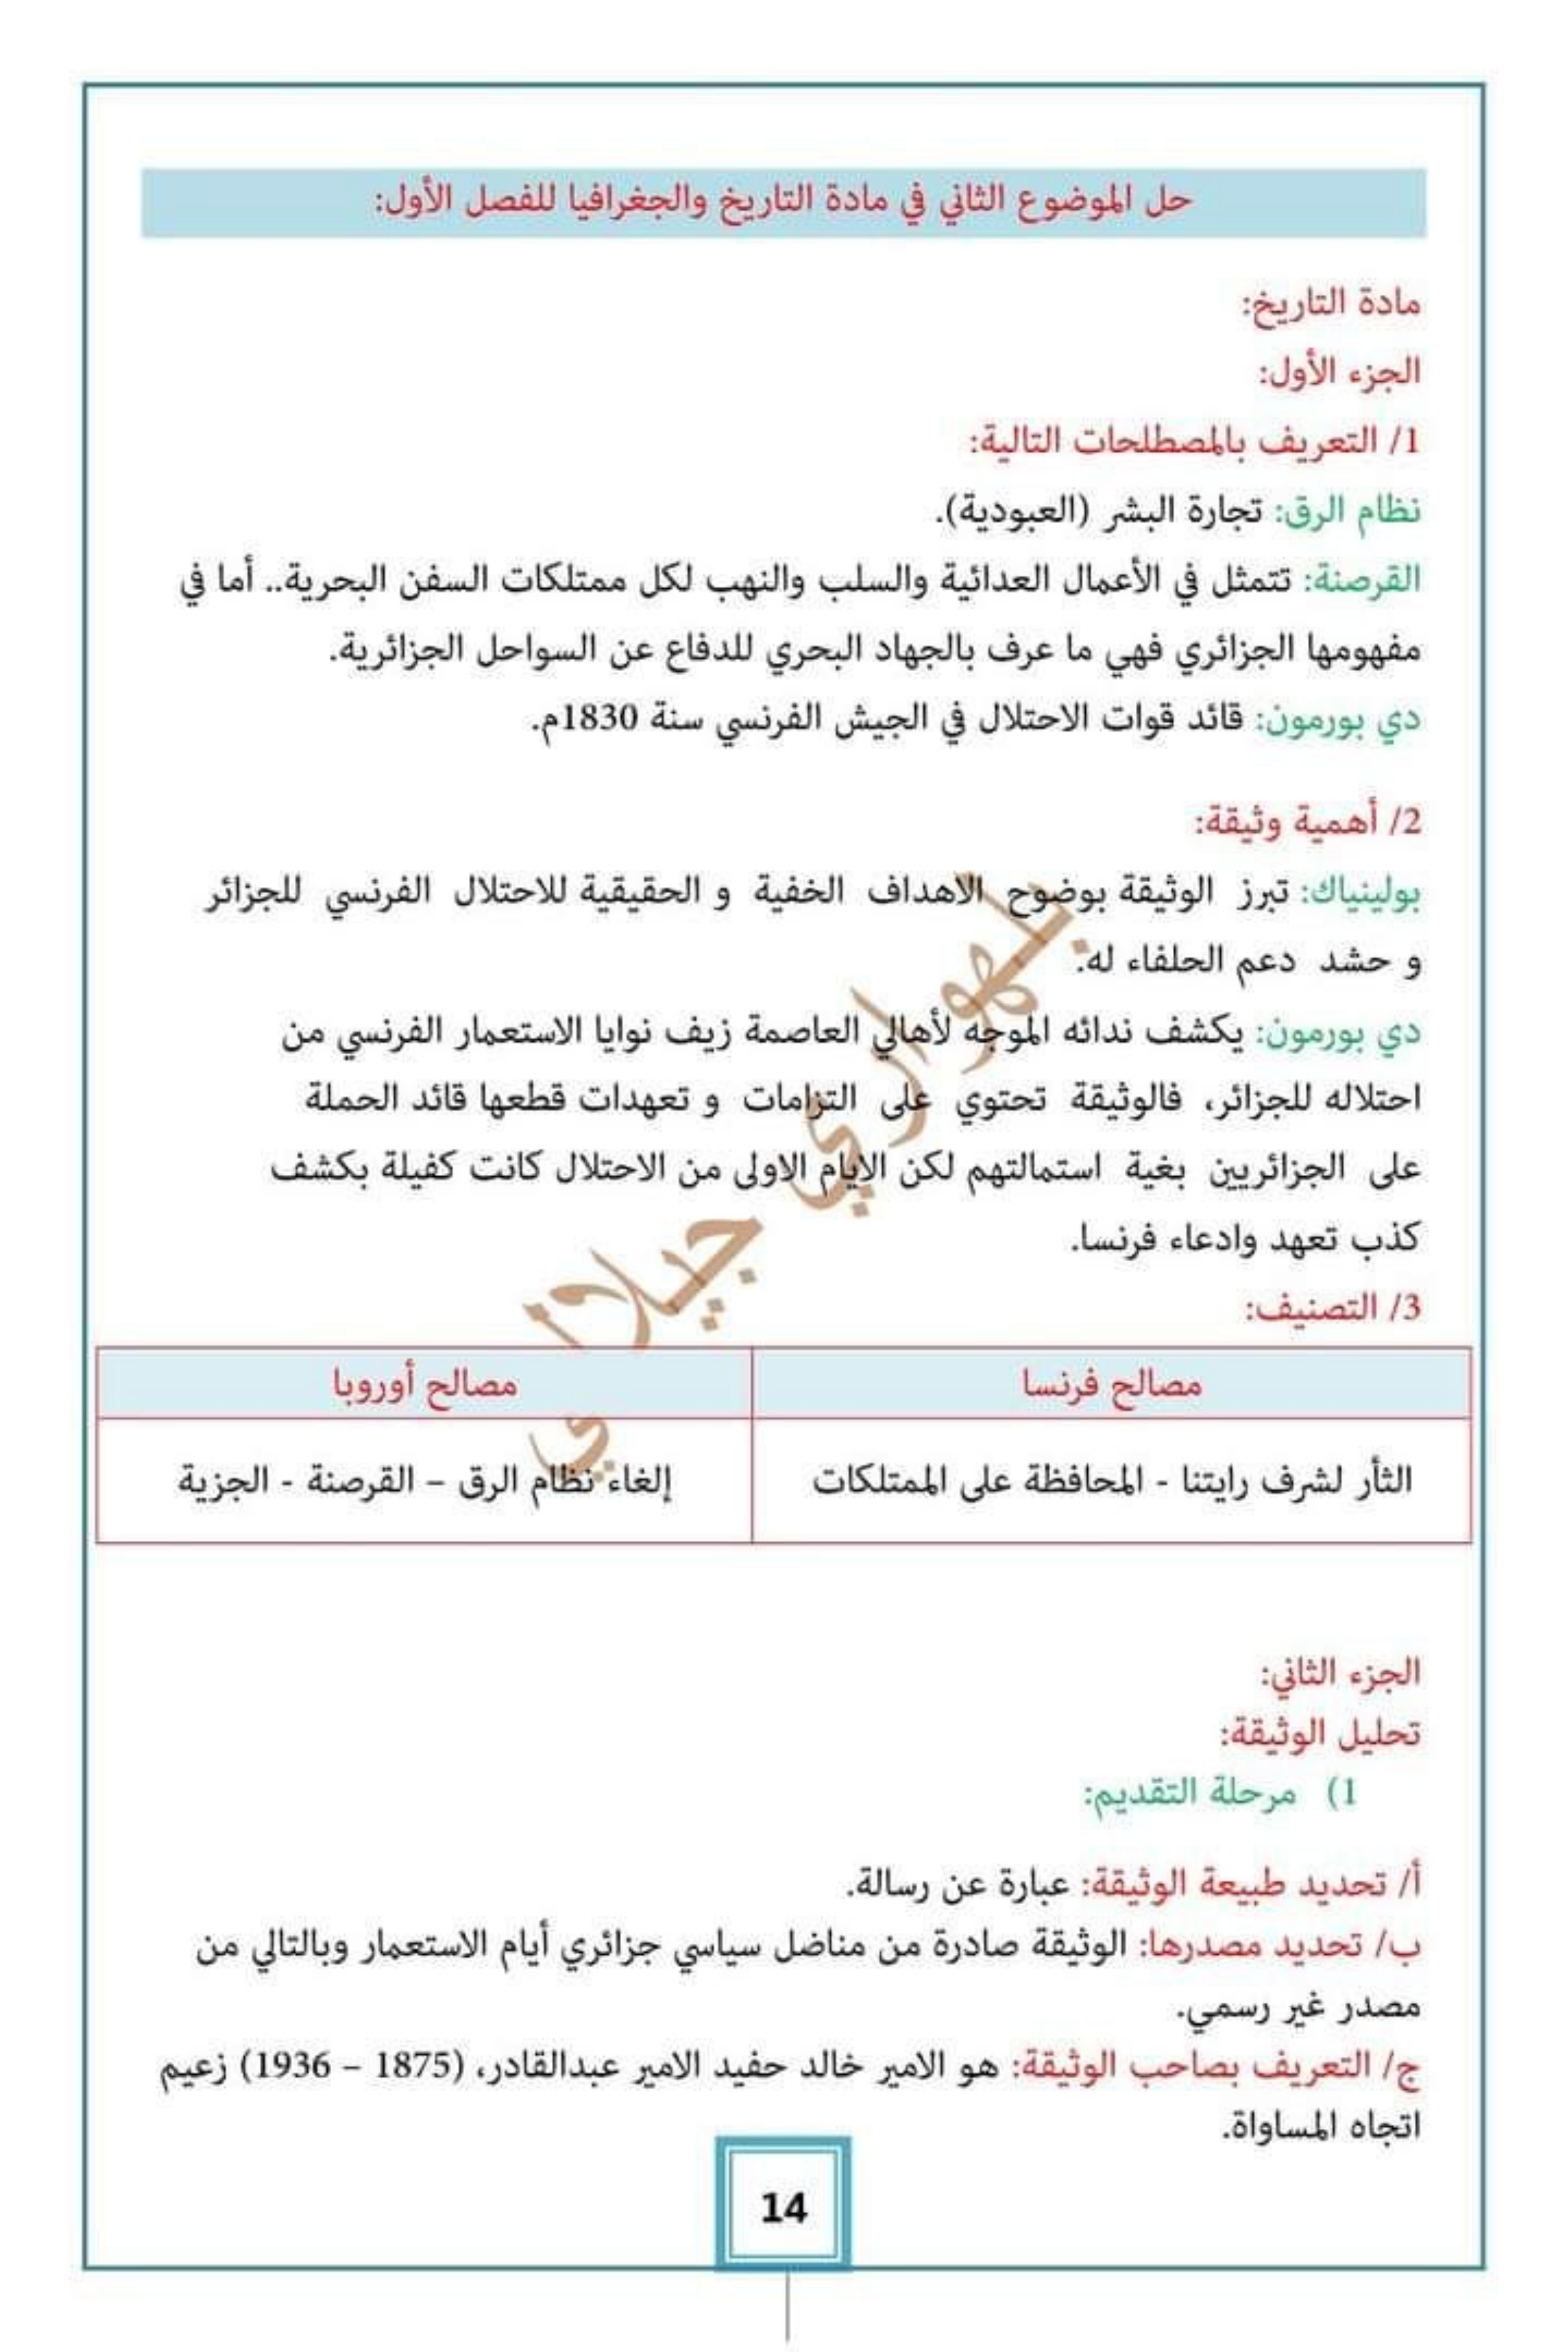 حل الموضوع الثاني في مادة التاريخ والجغرافيا للفصل الأول:
مادة التاريخ:
الجزء الأول:
1/ التعريف بالمصطلحات التالية:
نظام الرق: تجارة البشر (العبودية).
القرصنة: تتمثل في الأعمال العدائية والسلب والنهب لكل ممتلكات السفن البحرية.. أما في
مفهومها الجزائري فهي ما عرف بالجهاد البحري للدفاع عن السواحل الجزائرية.
دي بورمون: قائد قوات الاحتلال في الجيش الفرنسي سنة 1830م.
2/ أهمية وثيقة:
بولينياك: تبرز الوثيقة بوضوح الاهداف الخفية و الحقيقية للاحتلال الفرنسي للجزائر
و حشد دعم الحلفاء له.
دي بورمون: يكشف ندائه الموجه لأهالي العاصمة زيف نوايا الاستعمار الفرنسي من
احتلاله للجزائر، فالوثيقة تحتوي على التزامات و تعهدات قطعها قائد الحملة
على الجزائريين بغية استمالتهم لكن الايام الاولى من الاحتلال كانت كفيلة بكشف
كذب تعهد وادعاء فرنسا.
3/ التصنيف:
مصالح فرنسا
مصالح أوروبا
الثأر لشرف رايتنا - المحافظة على الممتلكات
إلغاء نظام الرق – القرصنة - الجزية
بلهواري جيلالي
الجزء الثاني:
تحليل الوثيقة:
1) مرحلة التقديم:
أ/ تحديد طبيعة الوثيقة: عبارة عن رسالة.
ب/ تحديد مصدرها: الوثيقة صادرة من مناضل سياسي جزائري أيام الاستعمار وبالتالي من
مصدر غير رسمي.
ج/ التعريف بصاحب الوثيقة: هو الامير خالد حفيد الامير عبدالقادر، (1875 – 1936) زعيم
اتجاه المساواة.
14